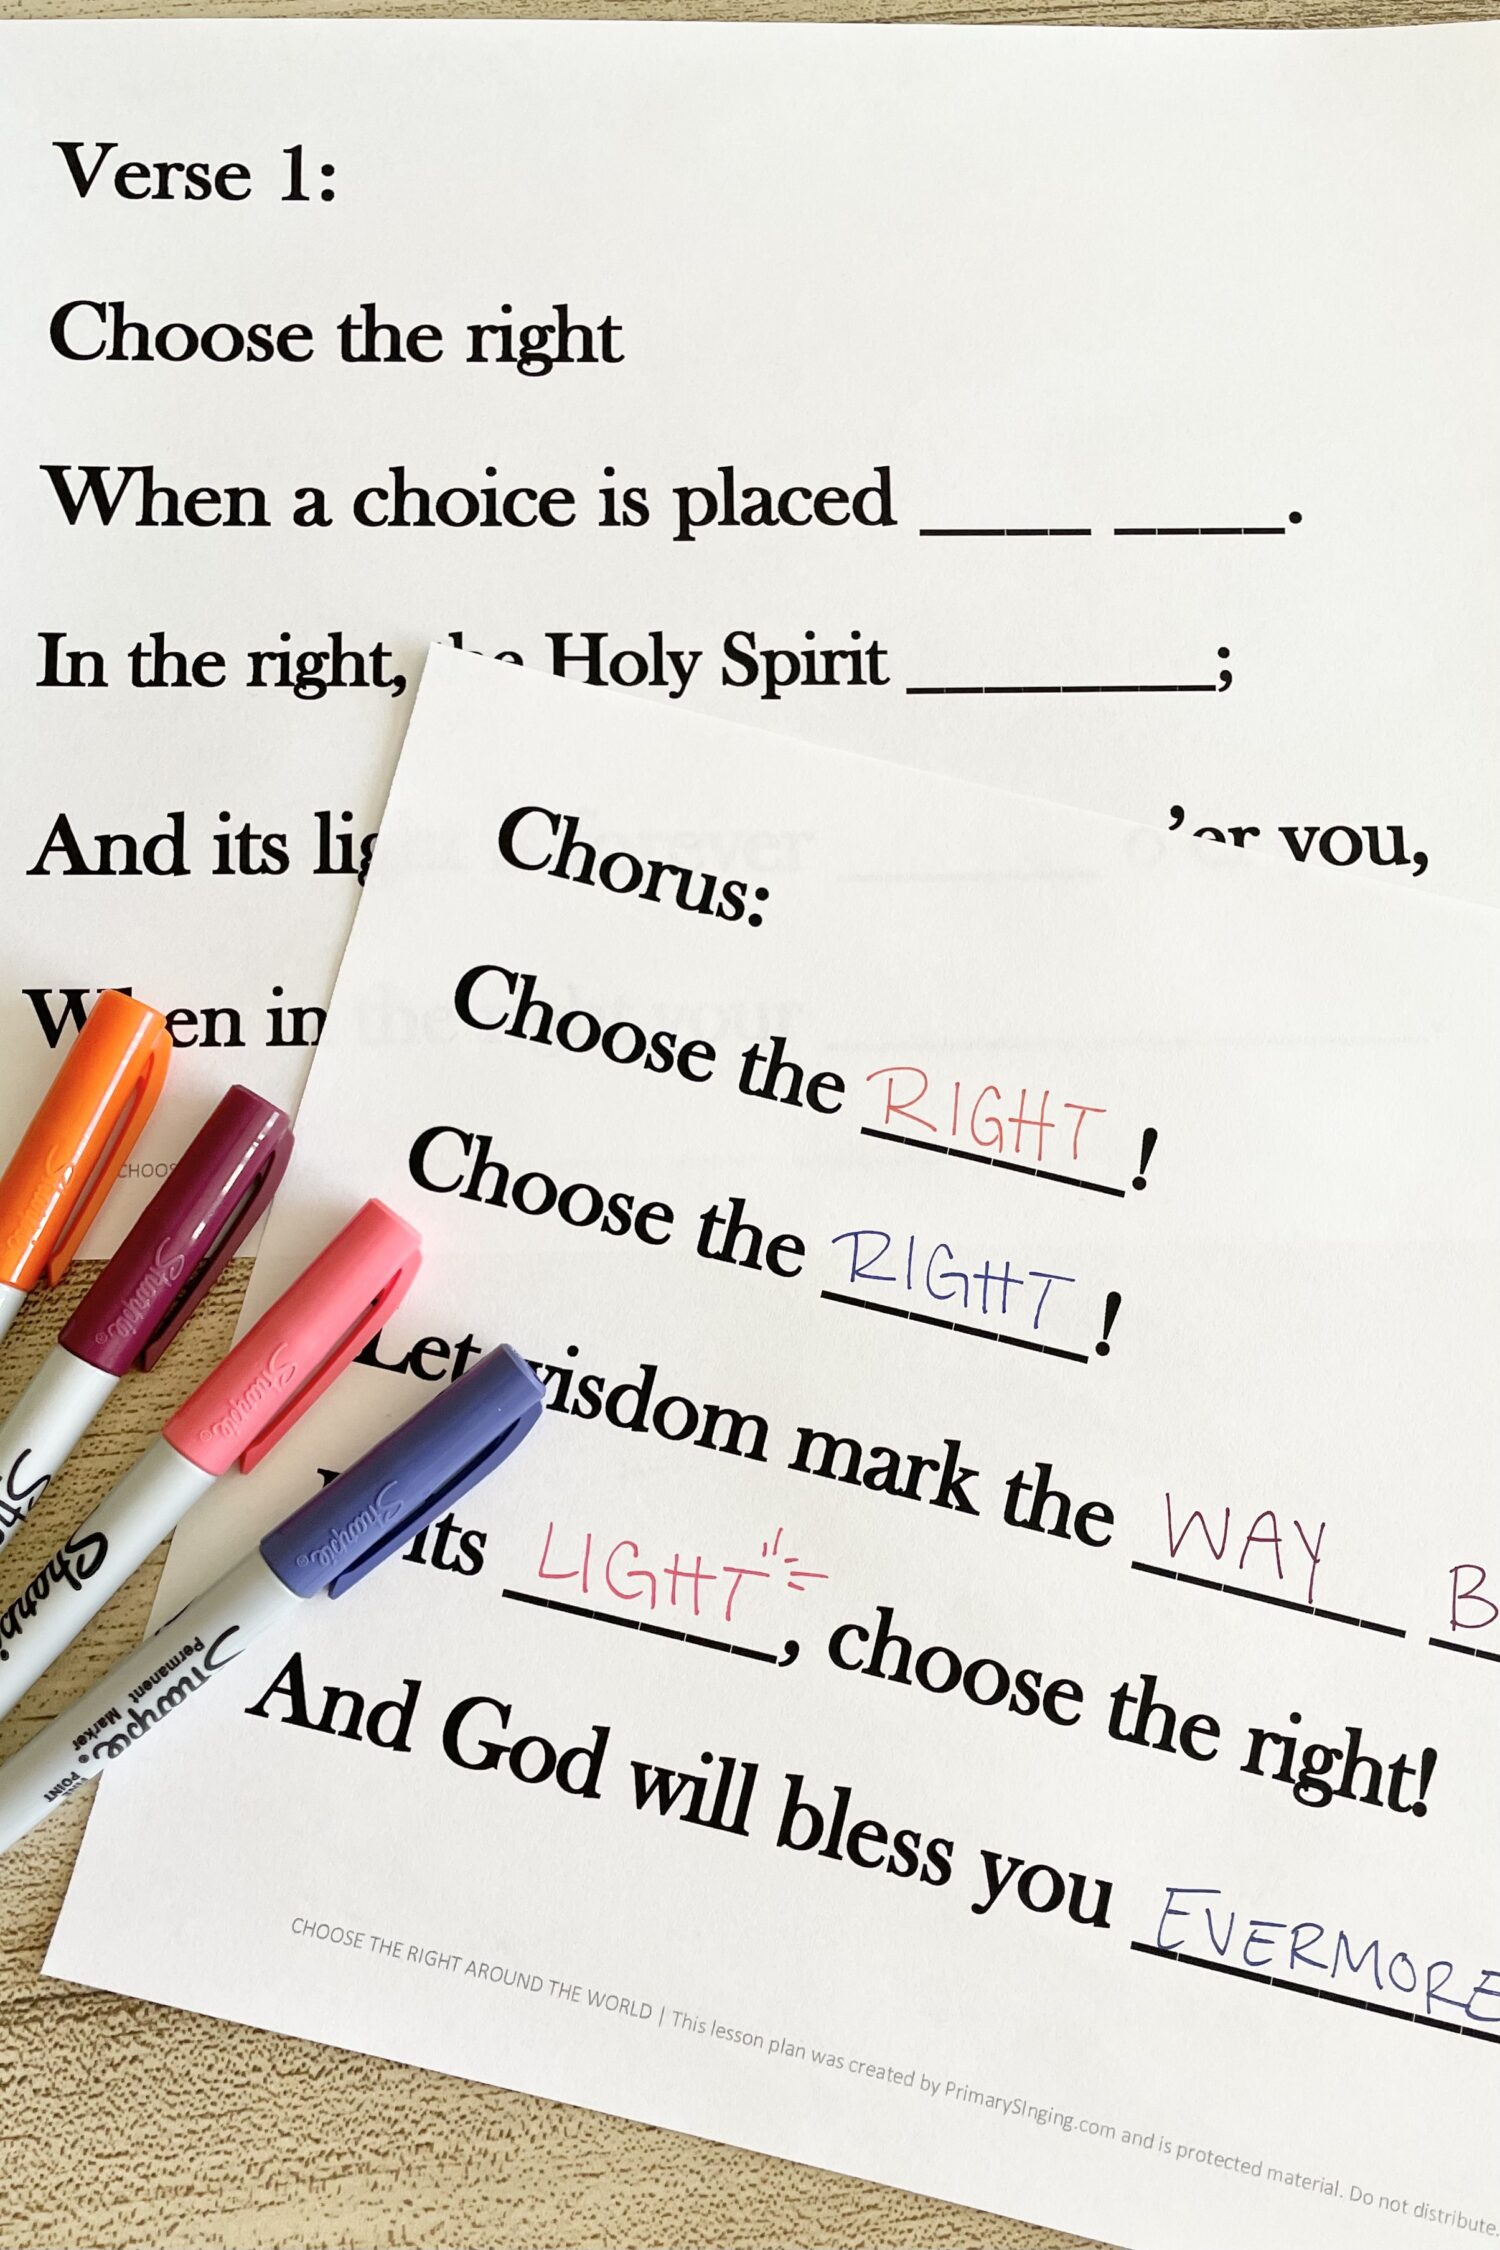 Verse 1:
Choose the right
When a choice is placed ____ ____.
In the right, the Holy Spirit ________;
And its light forever ________ o'er you,
When in the right your
CHOOS
Chorus:
Choose the RIGHT!
Choose the RIGHT!
Let wisdom mark the WAY B
its LIGHT, choose the right!
And God will bless you EVERMORE
CHOOSE THE RIGHT AROUND THE WORLD | This lesson plan was created by PrimarySInging.com and is protected material. Do not distribute.
Sharpie
Sharpie
Sharpie
Sharpie
Sharpie
Sharpie
Permanent
Marker
POINT